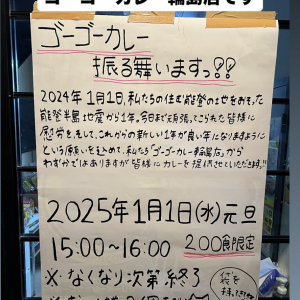 ゴーゴーカレー輪島店です
ゴーゴーカレー
振る舞いますっ!!
2024年1月1日、私たちの住む能登の地をおそった
能登半島地震から1年。今日まで頑張ってこられた皆様に
慰労を、そして、これからの新しい1年が良い年になりますように
という願いを込めて、私たち「ゴーゴーカレー輪島店」から
わずかではありますが皆様にカレーを提供させていただきます!!
2025年1月1日(水)元旦
15:00~16:00 200食限定
※なくなり次第終了
袋を